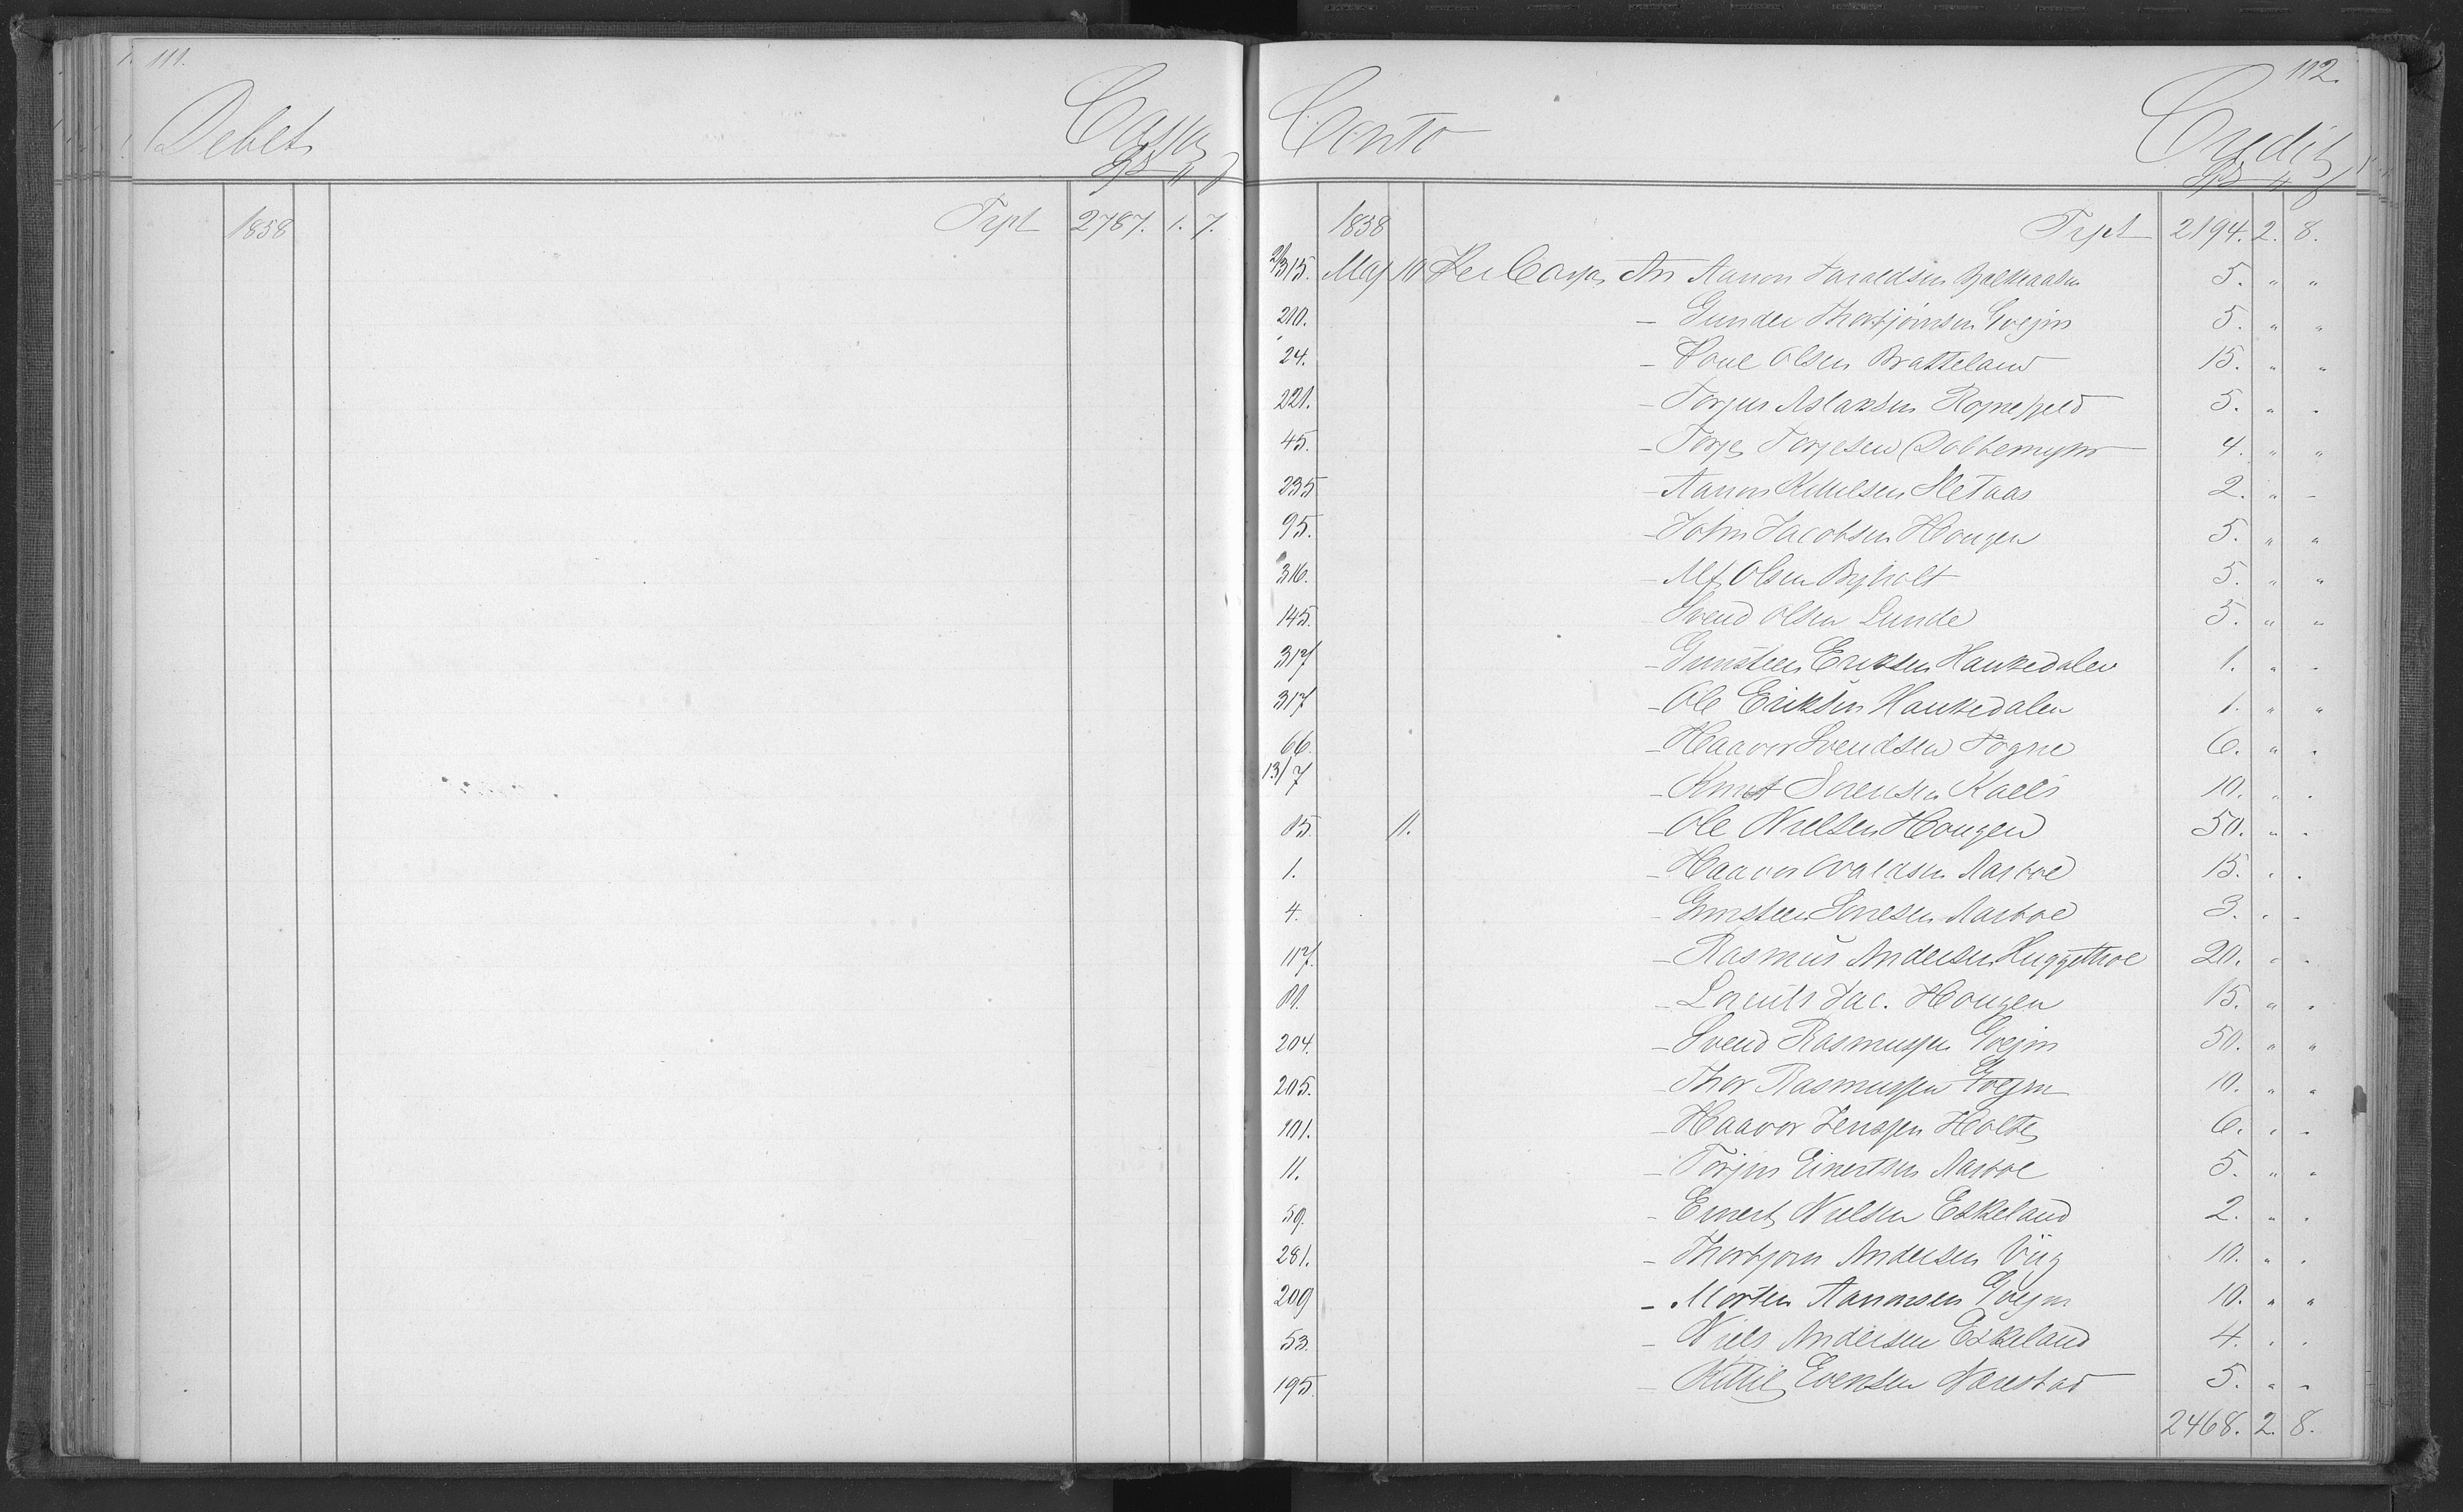 111.
Debet Cassa
1858 Trpt 2787. 1. 7.
112.
Conto Credit
1858 Trpt 2194. 2. 8.
315. Maj 10 Per Cassa An Aanon Taraldsen 5. " "
210. - Gunder Thorbjørnsen Evejm 5. " "
24. - Houe Olsen Bratteland 15. " "
221. - Torjus Aslaksen 5. " "
45. - Torje Torjesen Dobbemyhr 4. " "
235 - Aanon Kittilsen Sletaas 2. " -
95. - John Jacobsen Hougen 5. " "
316. - Alf Olsen Byholt 5. " "
145. Svend Olsen Lunde 5. " "
317 - Gunsteen Eriksen Haukedalen 1. " "
317 - Ole Eriksen Haukedalen 1. " "
66. - Haavor Svendsen Fogne 6. " "
13/7 - Knut Sørensen 10. " "
15 11. - Ole Nielsen Hougen 50. " "
1. - Haavor Aasboe 15. " "
4. - Gunsteen Aasboe 3. " "
117. - Rasmus Andersen 20. " "
- Lorents Jac. Hougen 15. " "
204. - Svend Rasmussen Evejm 50. " "
205. - Thor Rasmussen Evejm 10. " "
101. - Haavor Jenssen Holte 6. " "
11. - Torjus Einertsen Aasboe 5. " "
59. - Einert Nielsen Eskeland 2. " "
281. - Thorbjørn Andersen Viig 10. " "
209 - Morten Aanonsen Evejm 10. " "
53. - Niels Andersen Eskeland 4. " "
195. - Kittil Evensen Narestad 5. " "
2468. 2. 8.